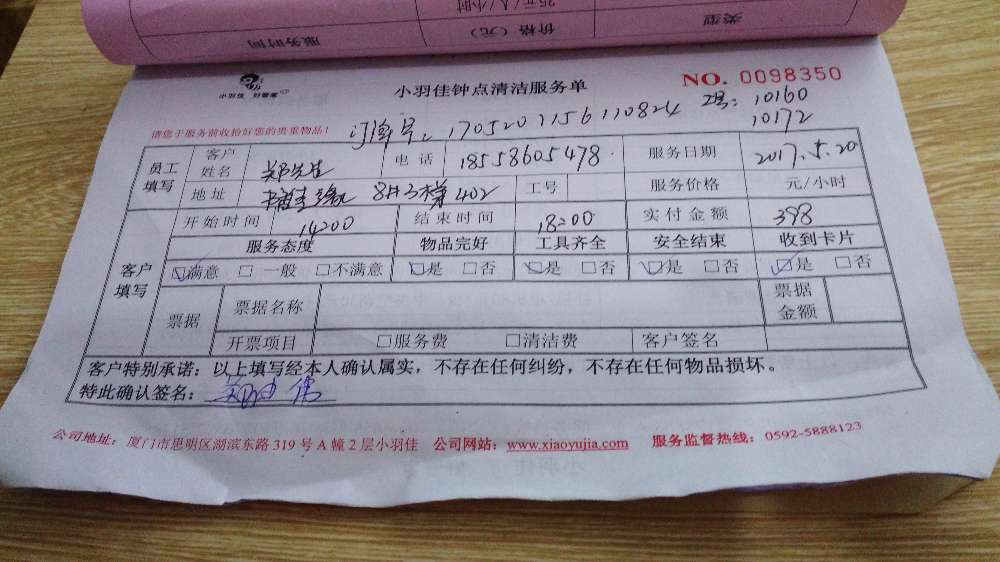 类型 价格（元） 服务时间
25元/人/小时
小羽佳 好管家 小羽佳钟点清洁服务单 NO. 0098350
订单号：1705201156110824 工号：10160
10172
请您于服务前收拾好您的贵重物品！
员工填写 客户姓名 郑先生 电话 18558605478 服务日期 2017.5.20
地址 8#3梯402 工号 服务价格 元/小时
客户填写 开始时间 14:00 结束时间 18:00 实付金额 398
服务态度 物品完好 工具齐全 安全结束 收到卡片
☑满意 □一般 □不满意 ☑是 □否 ☑是 □否 ☑是 □否 ☑是 □否
票据 票据名称 票据金额
开票项目 □服务费 □清洁费 客户签名
客户特别承诺：以上填写经本人确认属实，不存在任何纠纷，不存在任何物品损坏。
特此确认签名：
公司地址：厦门市思明区湖滨东路319号A幢2层小羽佳 公司网站：www.xiaoyujia.com 服务监督热线：0592-5888123